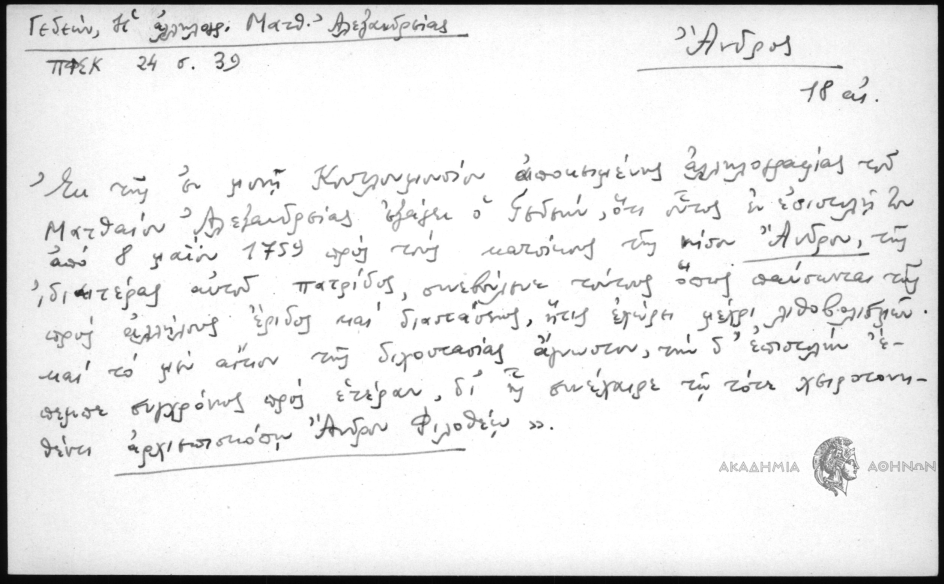 Γεδεών, Ἡ ἀλληλογρ. Ματθ. Ἀλεξανδρείας
ΠΦΣΚ 24 σ. 39
Ἄνδρος
18 αἰ.
Ἐκ τῆς ἐν μονῇ Κουτλουμουσίου ἀποκειμένης ἀλληλογραφίας τοῦ
Ματθαίου Ἀλεξανδρείας ἐξάγει ὁ Γεδεών, ὅτι οὗτος ἐν ἐπιστολῇ του
ἀπό 8 μαΐου 1759 πρός τούς κατοίκους τῆς νήσου Ἄνδρου, τῆς
ἰδιαιτέρας αὐτοῦ πατρίδος, συνεβούλευε τούτους ὅπως παύσωνται τῆς
πρός ἀλλήλους ἔριδος καί διαστάσεως, ἥτις ἐχώρει μέχρι λιθοβολισμῶν.
καί τό μέν αἴτιον τῆς διχοστασίας ἄγνωστον, τήν δ' ἐπιστολήν ἔ-
πεμπε συγχρόνως πρός ἑτέραν, δι' ἧς συνέχαιρε τῷ τότε χειροτονη-
θέντι ἀρχιεπισκόπῳ Ἄνδρου Φιλοθέῳ ».
ΑΚΑΔΗΜΙΑ ΑΘΗΝΩΝ